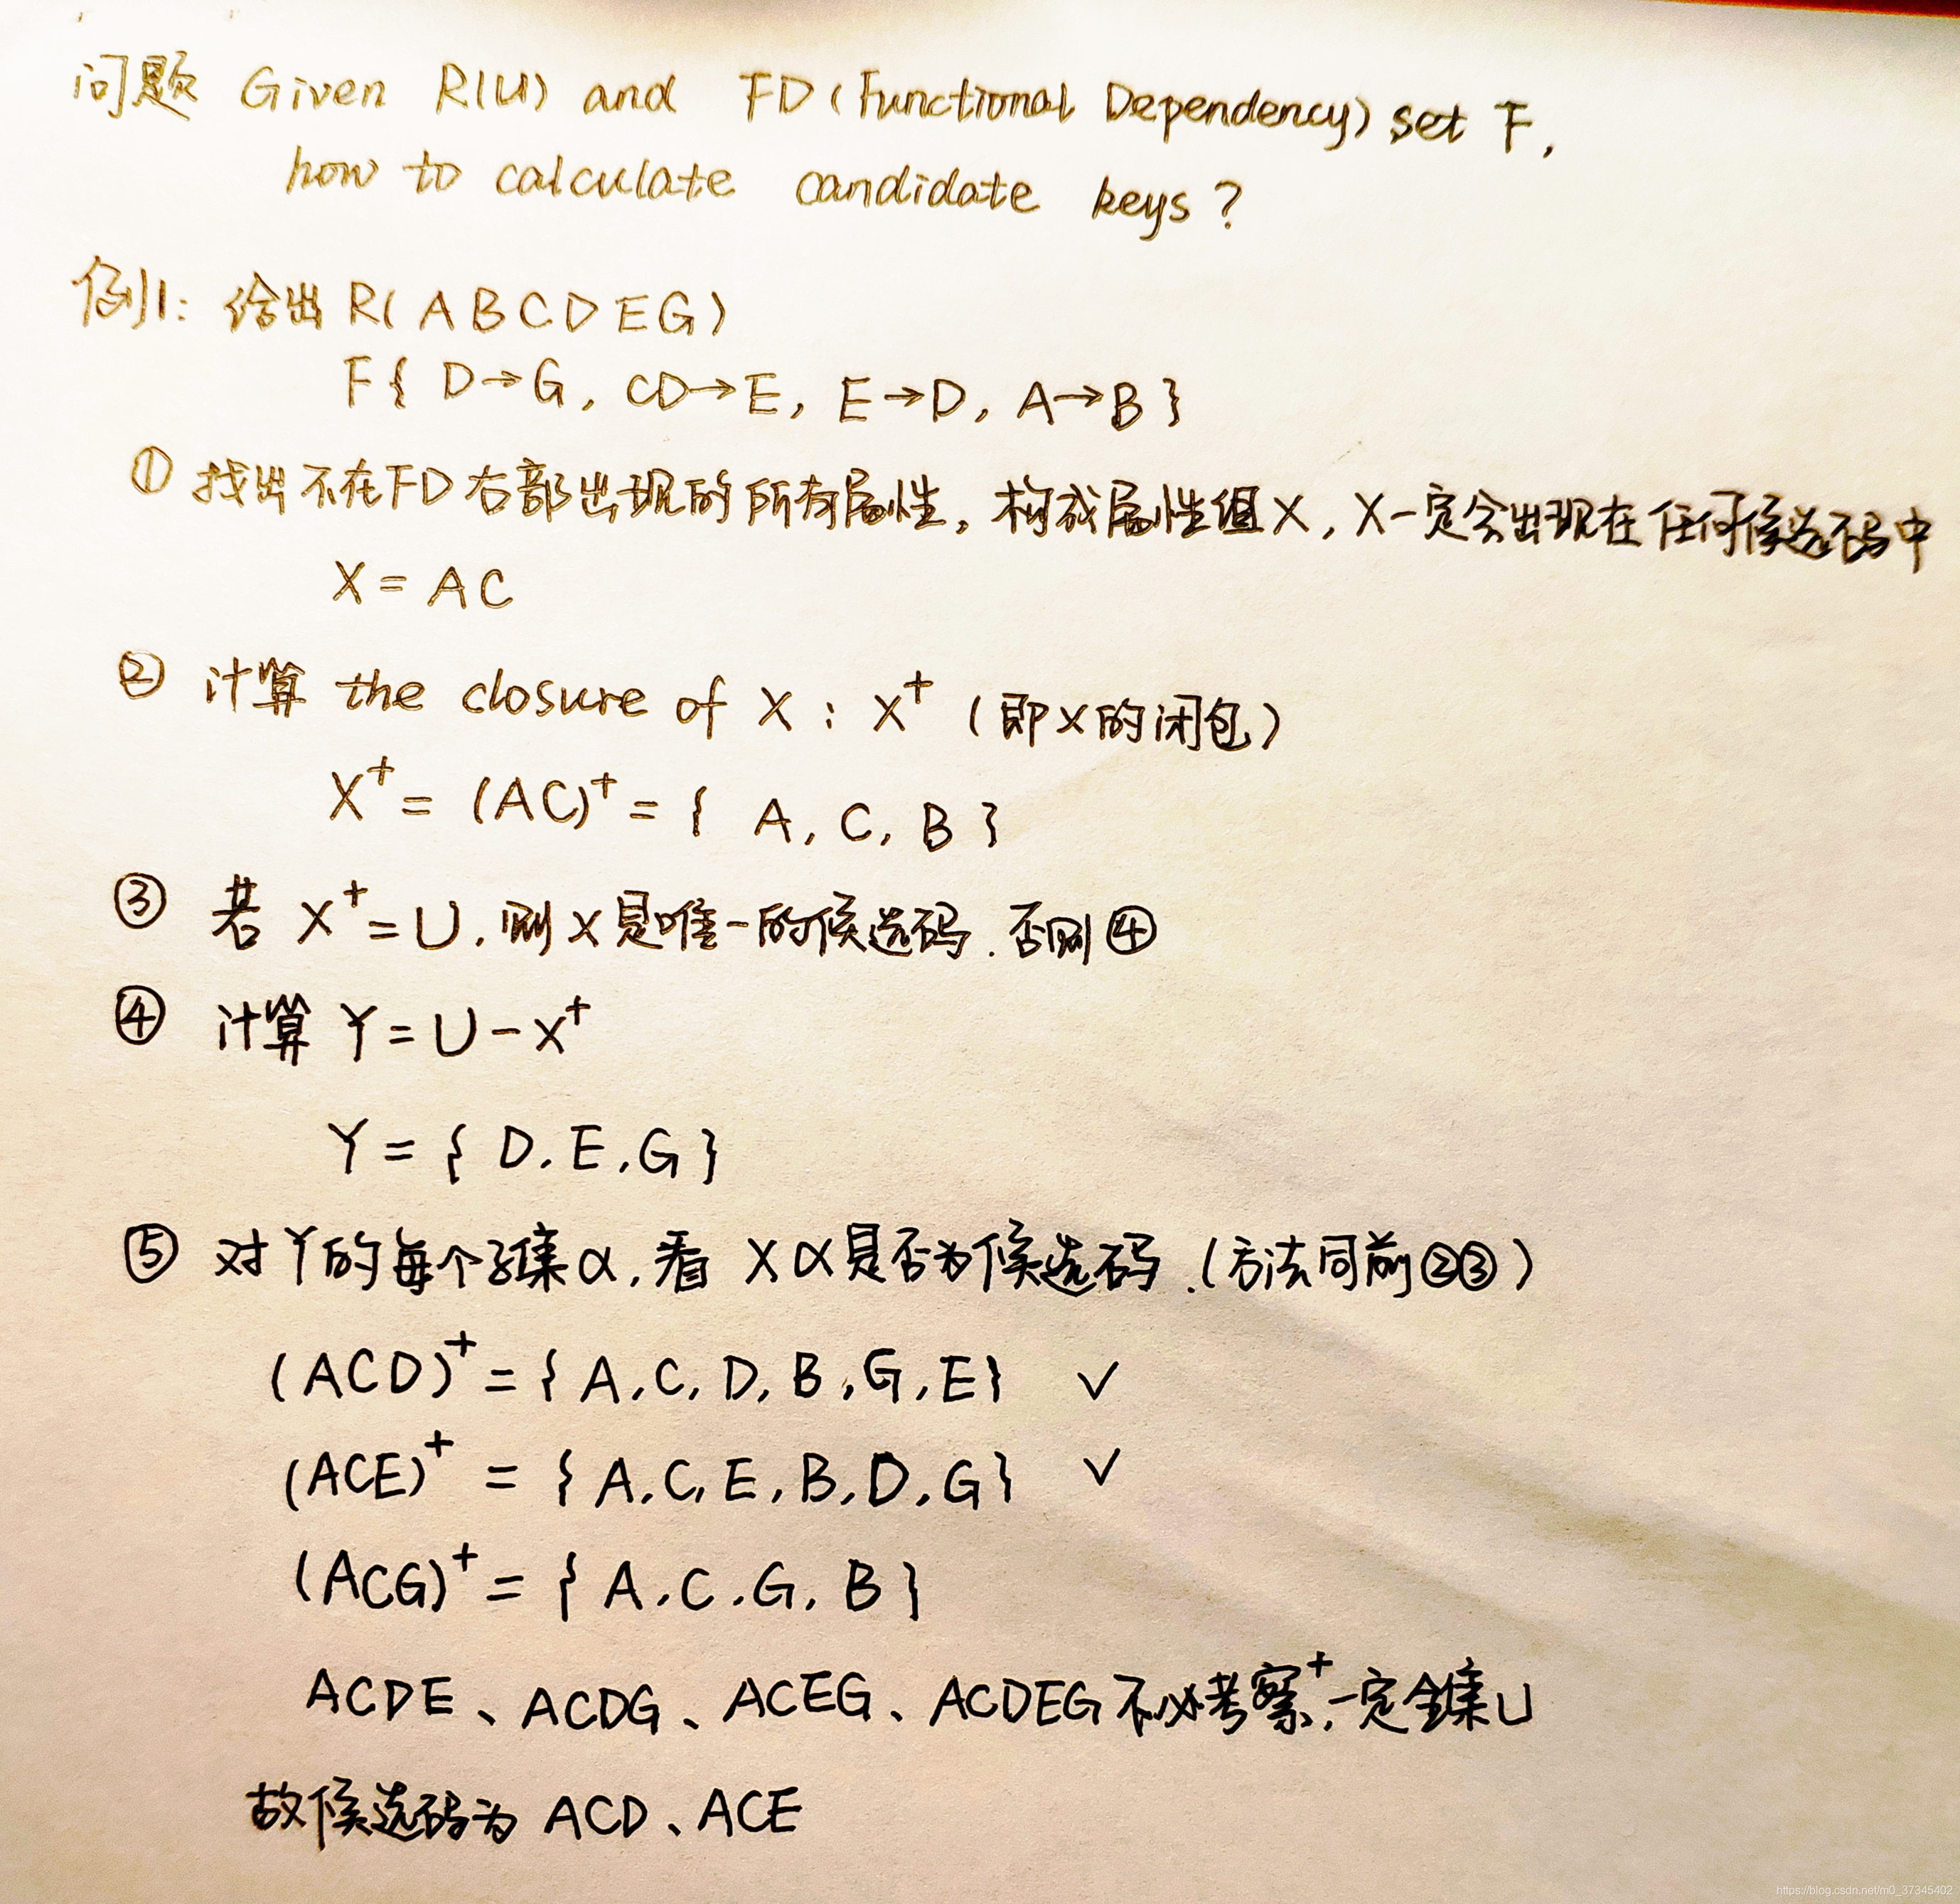 问题 Given R(U) and FD (Functional Dependency) set F,
how to calculate candidate keys?
例1: 给出 R( A B C D E G )
F{ D→G, CD→E, E→D, A→B }
① 找出不在FD右部出现的所有属性, 构成属性组X, X一定会出现在任何候选码中
X = AC
② 计算 the closure of X : X⁺ (即X的闭包)
X⁺ = (AC)⁺ = { A, C, B }
③ 若 X⁺ = U, 则X是唯一的候选码. 否则④
④ 计算 Y = U - X⁺
Y = { D, E, G }
⑤ 对Y的每个子集α, 看 Xα是否为候选码. (方法同前②③)
(ACD)⁺ = { A, C, D, B, G, E } ✓
(ACE)⁺ = { A, C, E, B, D, G } ✓
(ACG)⁺ = { A, C, G, B }
ACDE、ACDG、ACEG、ACDEG不必考察, ⁺一定全集U
故候选码为 ACD、ACE
https://blog.csdn.net/m0_37345402